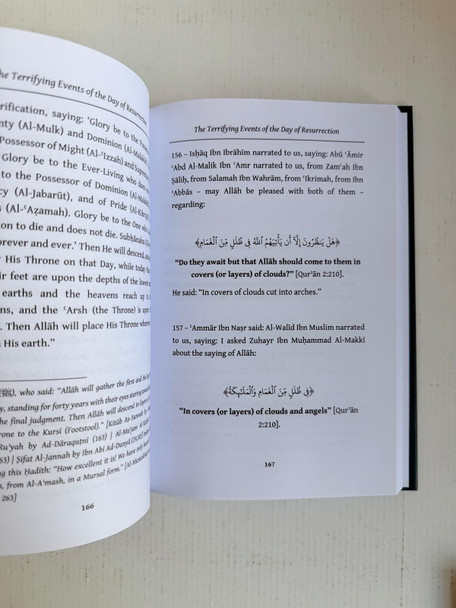 he Terrifying Events of the Day of Resurrection
rification, saying: ‘Glory be to the Po
nty (Al-Mulk) and Dominion (Al-Malakū
Possessor of Might (Al-ʿIzzah) and Suprem
Glory be to the Ever-Living who doe
to the Possessor of Dominion (Al-Malak
cy (Al-Jabarūt), and of Pride (Al-Kibriy
s (Al-ʿAẓamah). Glory be to the One who
tion to die and does not die. Subḥānahū Glo
orever and ever.’ Then He will descend,
His Throne on that Day, while
eir feet are upon the depths of the lowest
earths and the heavens reach up
ns, and the ʿArsh (the Throne) is upon
. Then Allāh will place His Throne wherev
n His earth.”
who said: “Allāh will gather the first and the
y, standing for forty years with their eyes staring
the final judgment. Then Allāh will descend in
rone to the Kursī (Footstool).” [Kitāb As-Sunnah by
Ruʾyah by Ad-Dāraquṭnī (163) | Al-Muʿjam Al
63) | Ṣifat Al-Jannah by Ibn Abī Ad-Dunyā
ng this Ḥadīth: “How excellent it is! We have only
n, from Al-Aʿmash, in a Mursal form.” [Al-Masāʾil
263]
166
The Terrifying Events of the Day of Resurrection
156 – Isḥāq Ibn Ibrāhīm narrated to us, saying: Abū ʿĀmir
ʿAbd Al-Malik Ibn ʿAmr narrated to us, from Zamʿah Ibn
Ṣāliḥ, from Salamah Ibn Wahrām, from ʿIkrimah, from Ibn
ʿAbbās – may Allāh be pleased with both of them –
regarding:
﴿هَلْ يَنظُرُونَ إِلَّآ أَن يَأْتِيَهُمُ ٱللَّهُ فِى ظُلَلٍ مِّنَ ٱلْغَمَامِ﴾
“Do they await but that Allāh should come to them in
covers (or layers) of clouds?” [Qurʾān 2:210].
He said: “In covers of clouds cut into arches.”
157 – ʿAmmār Ibn Naṣr said: Al-Walīd Ibn Muslim narrated
to us, saying: I asked Zuhayr Ibn Muḥammad Al-Makkī
about the saying of Allāh:
﴿فِى ظُلَلٍ مِّنَ ٱلْغَمَامِ وَٱلْمَلَٰٓئِكَةُ﴾
“In covers (or layers) of clouds and angels” [Qurʾān
2:210].
167